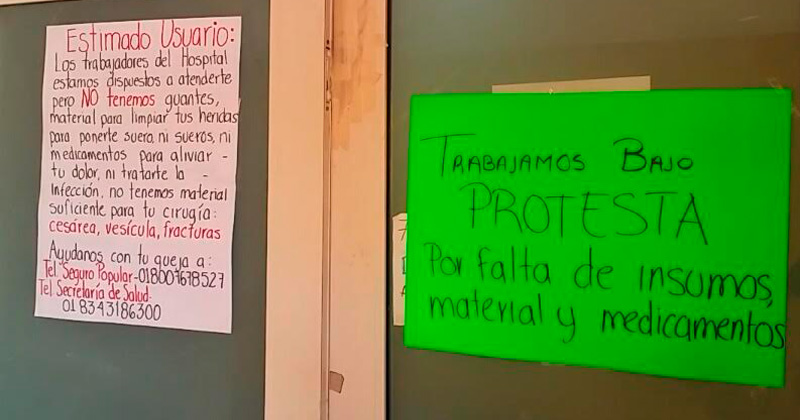 Estimado Usuario:
Los trabajadores del Hospital
estamos dispuestos a atenderte
pero NO tenemos guantes,
material para limpiar tus heridas
para ponerte suero, ni sueros, ni
medicamentos para aliviar -
tu dolor, ni tratarte la -
Infección, no tenemos material
suficiente para tu cirugía:
cesárea, vesícula, fracturas
Ayudanos con tu queja a:
Tel. Seguro Popular-018007678527
Tel Secretaria de Salud-
01 8343186300
TRABAJAMOS BAJO
PROTESTA
Por falta de insumos,
material y medicamentos